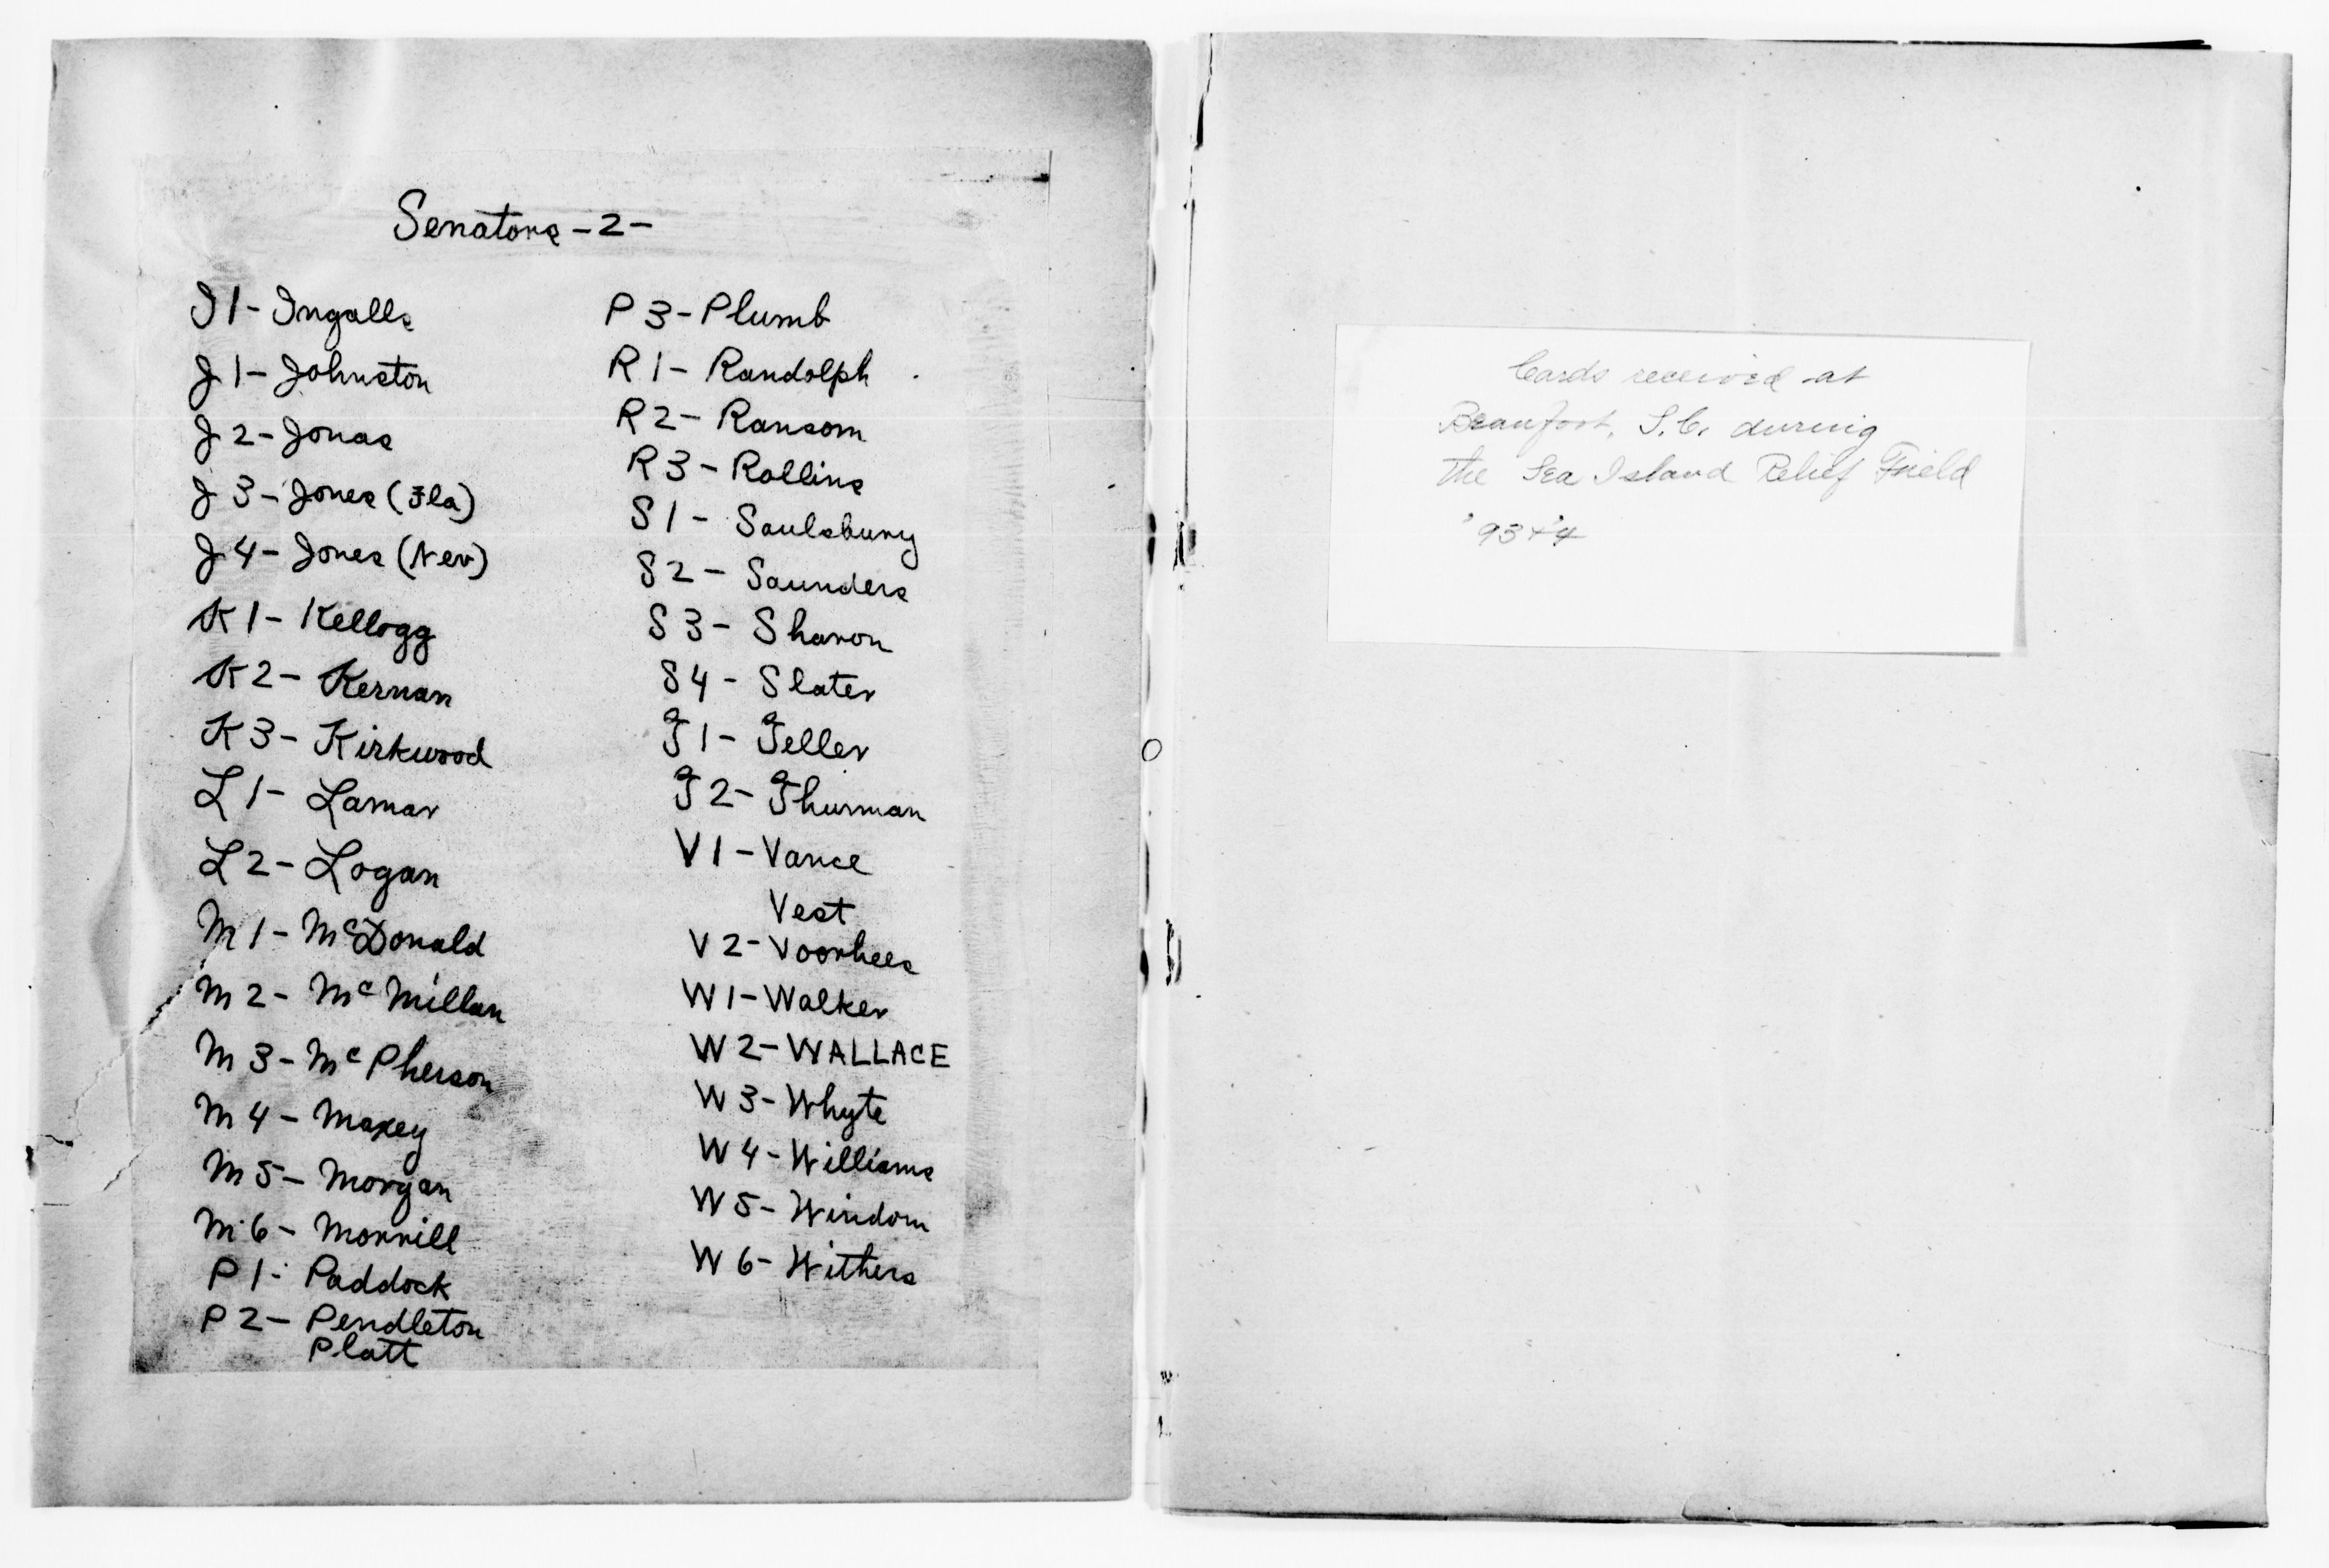 Senators -2-
I1- Ingalls
J1- Johnston
J2- Jonas
J3- Jones (Fla)
J4- Jones (Nev)
K1- Kellogg
K2- Kernan
K3- Kirkwood
L1- Lamar
L2- Logan
M1- McDonald
M2- McMillan
M3- McPherson
M4- Maxey
M5- Morgan
M6- Morrill
P1- Paddock
P2- Pendleton
Platt
P3- Plumb
R1- Randolph
R2- Ransom
R3- Rollins
S1- Saulsbury
S2- Saunders
S3- Sharon
S4- Slater
T1- Teller
T2- Thurman
V1- Vance
Vest
V2- Voorhees
W1- Walker
W2- WALLACE
W3- Whyte
W4- Williams
W5- Windom
W6- Withers
Cards received at
Beaufort, S.C. during
the Sea Island Relief Field
'93 + '4